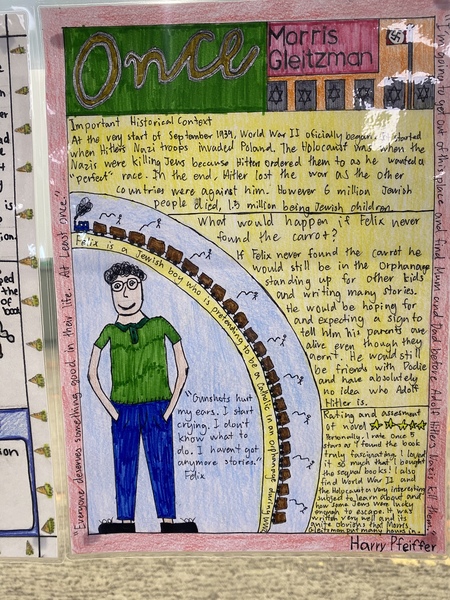 Once
Morris
Gleitzman
Important Historical Context
At the very start of September 1939, World War II oficially began. It started
when Hitler's Nazi troops invaded Poland. The Holocaust was when the
Nazis were killing Jews because Hitler ordered them to as he wanted a
"perfect" race. In the end, Hitler lost the war as the other
countries were against him. However 6 million Jewish
people died, 1.5 million being Jewish children.
What would happen if Felix never
found the carrot?
If Felix never found the carrot he
would still be in the Orphanage
standing up for other kids
and writing many stories.
He would be hoping for
and expecting a sign to
tell him his parents are
alive even though they
aren't. He would still
be friends with Dodie
and have absolutely
no idea who Adolf
Hitler is.
Rating and assesment
of novel
Personally, I rate Once 5
stars as I found the book
truly fascinating! I loved
it so much that I bought
the sequal books! I also
find World War II and
the Holocaust a very interesting
subject to learn about and
how some Jews were lucky
enough to escape. It was
written very well and its
quite obvious that Morris
Gleitzman put many hours in
Felix is a Jewish boy who is pretending to be a Catholic in an orphanage during WWII
"Gunshots hurt
my ears. I start
crying. I don't
know what to
do. I haven't got
anymore stories."
Felix
"Everyone deserves something good in their life. At least once."
"I'm going to get out of this place and find Mum and Dad before Adolf Hitler's Nazis kill them."
Harry Pfeiffer